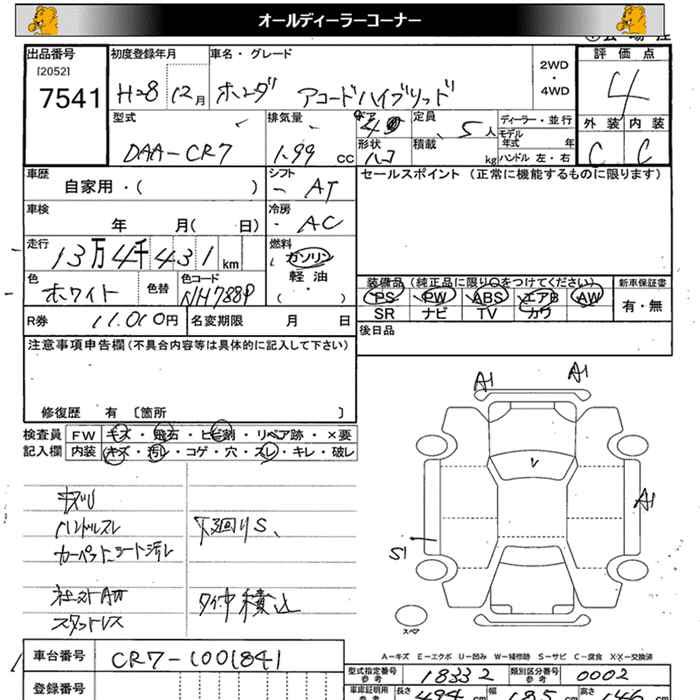 オールディーラーコーナー
出品番号 初度登録年月 車名・グレード 評価点
[2052]
7541 H28 12月 ホンダ アコードハイブリッド 2WD・4WD 4
型式 排気量 ドア 定員 ディーラー・並行 外装 内装
DAA-CR7 1.99 cc 4 5人 モデル年式 年 C C
形状 ハコ 積載 kg ハンドル 左・右
車歴 シフト セールスポイント (正常に機能するものに限ります)
自家用・( ) AT
車検 冷房
年 月( 日) AC
走行 燃料
13万4千431km ガソリン
軽油
・
( )
色 色替 色コード
ホワイト NH788P
装備品 (純正品に限り○をつけてください) 新車保証書
PS PW ABS エアB AW 有・無
SR ナビ TV カワ
R券 11,010円 名変期限 月 日 後日品
注意事項申告欄 (不具合内容等は具体的に記入して下さい)
修復歴 有 〔箇所 〕
検査員 FW キズ・飛石・ヒビ割・リペア跡・×要
記入欄 内装 キズ・汚レ・コゲ・穴・スレ・キレ・破レ
キズU
ハンドルスレ 下廻りS、
カーペットシート汚レ
スタットレス タイヤ積込
A1 A1
A1
S1
スペア
A−キズ E−エクボ U−凹み W−補修跡 S−サビ C−腐食 X・X×−交換済
車台番号 CR7-1001841
型式指定番号 参考 18332 類別区分番号 参考 0002
登録番号
車庫証明用 参考 長さ 494 cm 幅 185 cm 高さ 146 cm